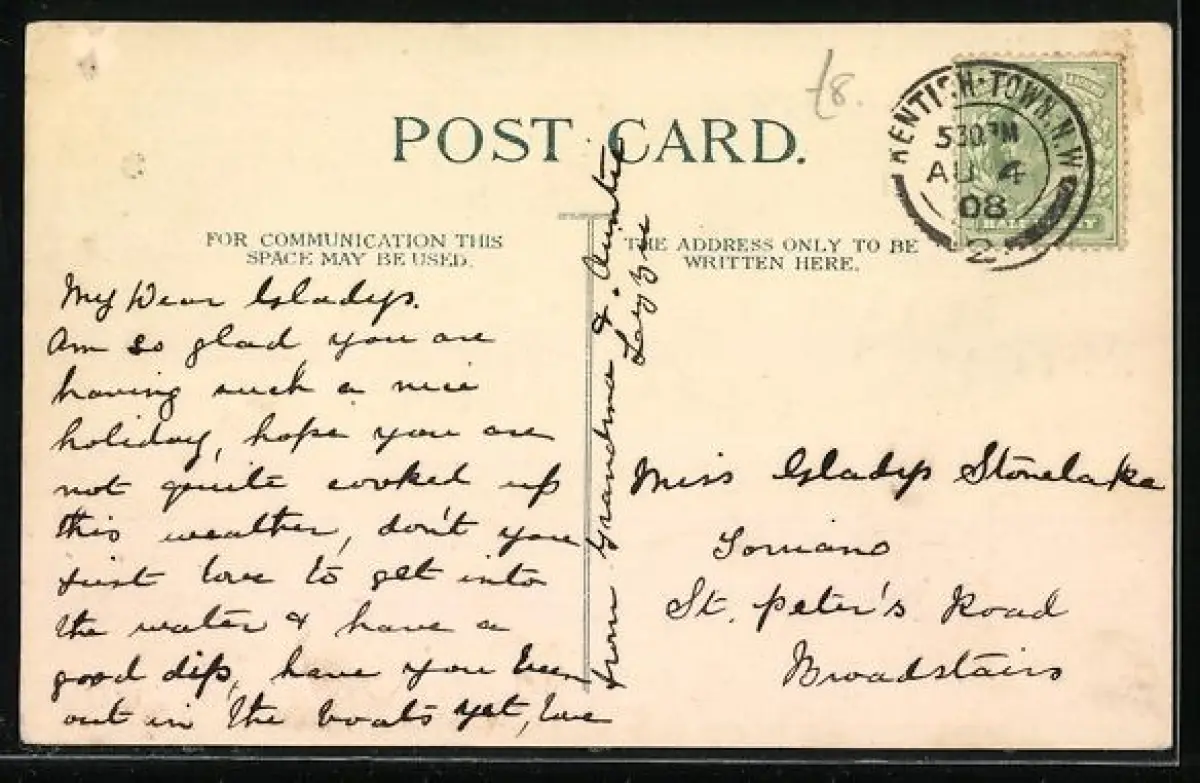 POST CARD.
FOR COMMUNICATION THIS
SPACE MAY BE USED.
THE ADDRESS ONLY TO BE
WRITTEN HERE.
KENTISH-TOWN. N.W
5 30 PM
AU 4
08
2
/8.
My Dear Gladys.
Am so glad you are
having such a nice
holiday, hope you are
not quite cooked up
this weather, don't you
just love to get into
the water & have a
good dip, have you been
out in the boats yet, love
from Grandma & Auntie
Miss Gladys Stonelake
St. Peter's Road
Broadstairs